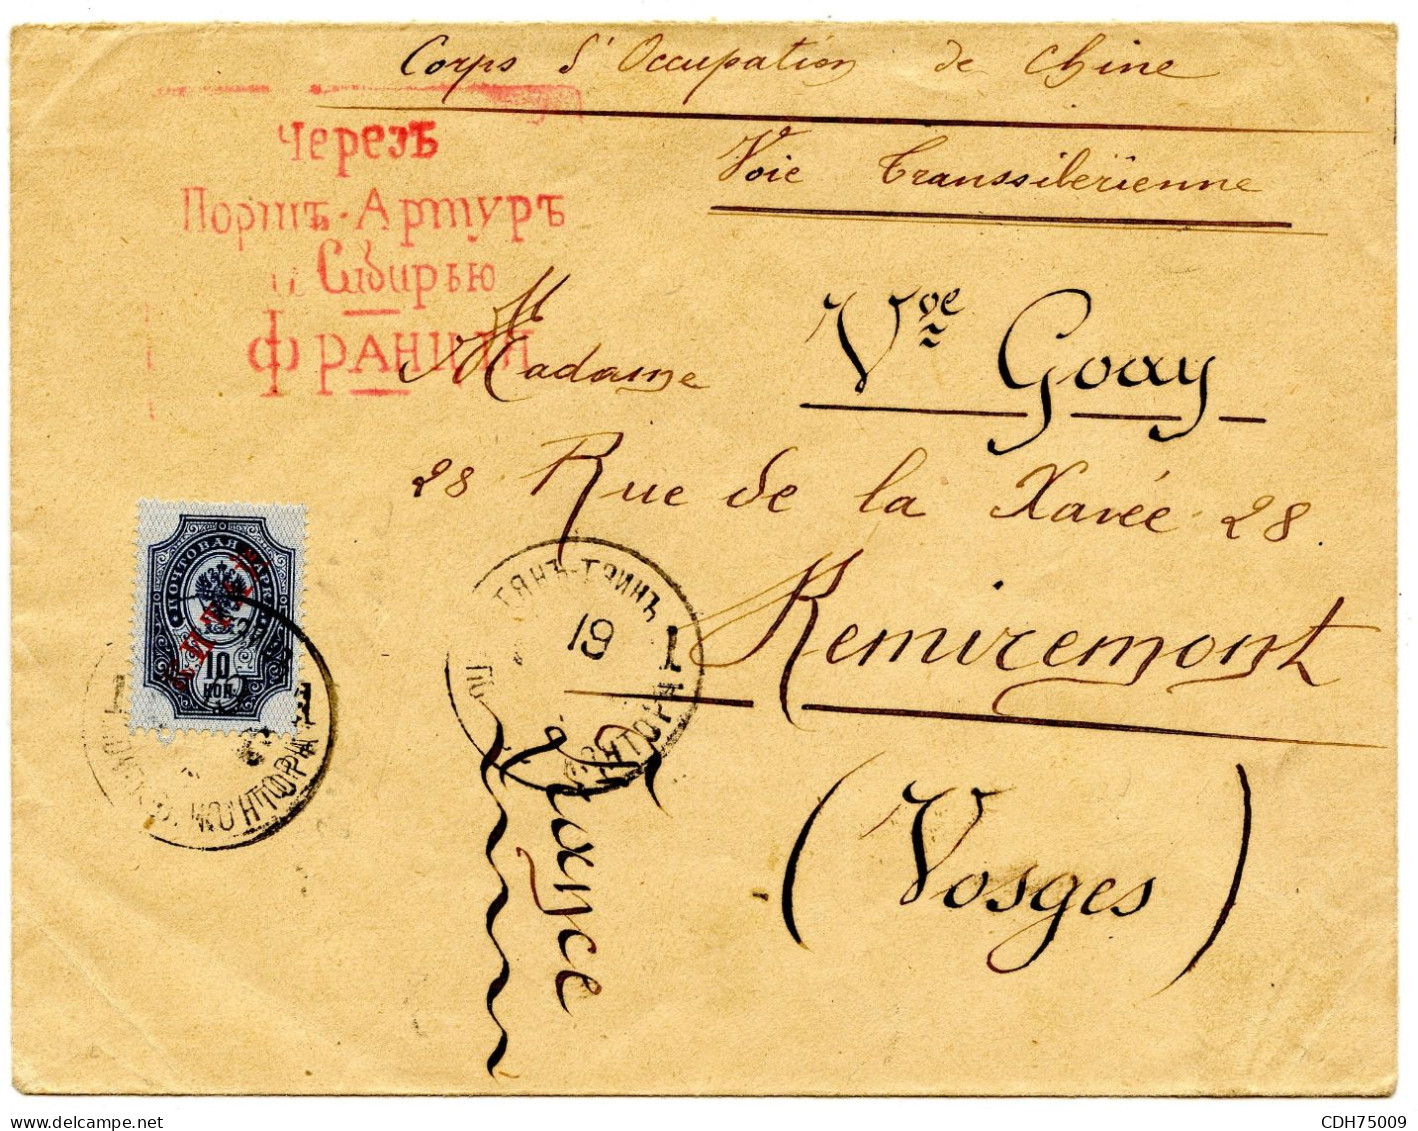 Corps d'Occupation de Chine
Voie Transsibérienne
Черезъ
Портъ-Артуръ
и Сибирью
ФРАНЦІЯ
Madame Vve Goay
28 Rue de la Xavée 28
Remiremont
(Vosges)
France
ПОЧТОВАЯ МАРКА
КИТАЙ
10
КОП.
ТЯНЬ-ТЗИНЬ
19
1
КОНТОРА
1
1
КОНТОРА
CDH75009